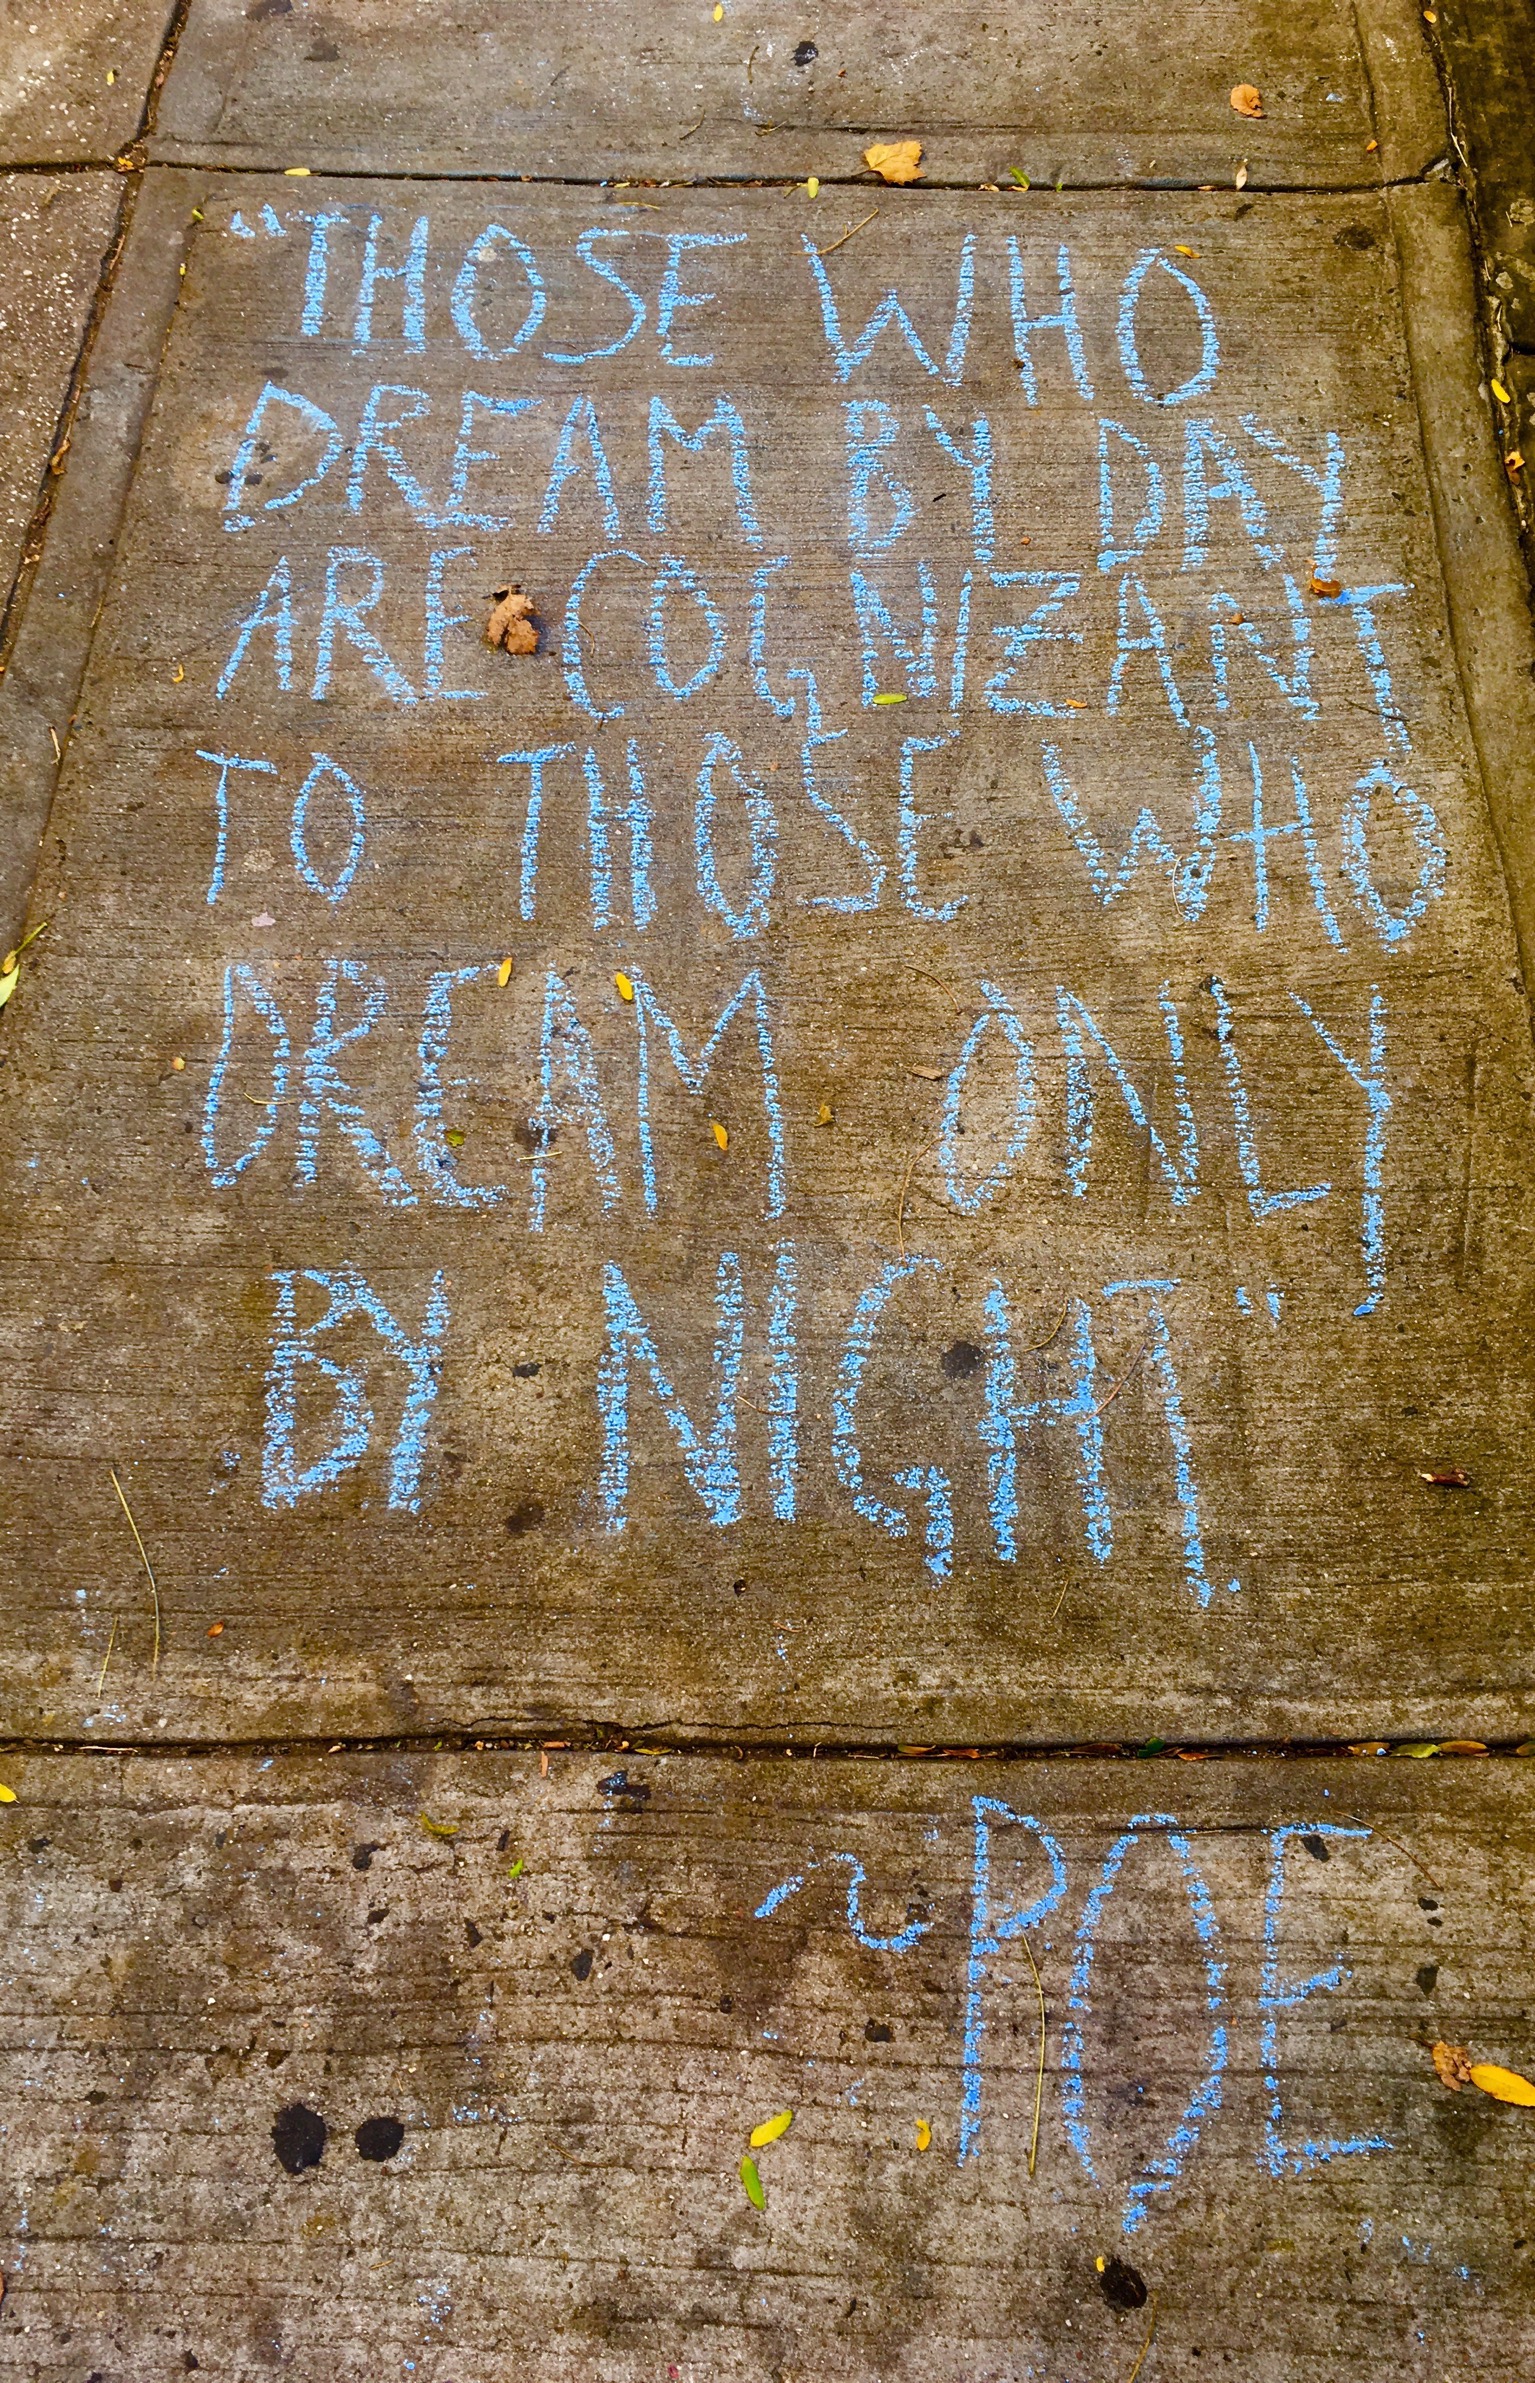 "THOSE WHO
DREAM BY DAY
ARE COGNIZANT
TO THOSE WHO
DREAM ONLY
BY NIGHT".
~ POE